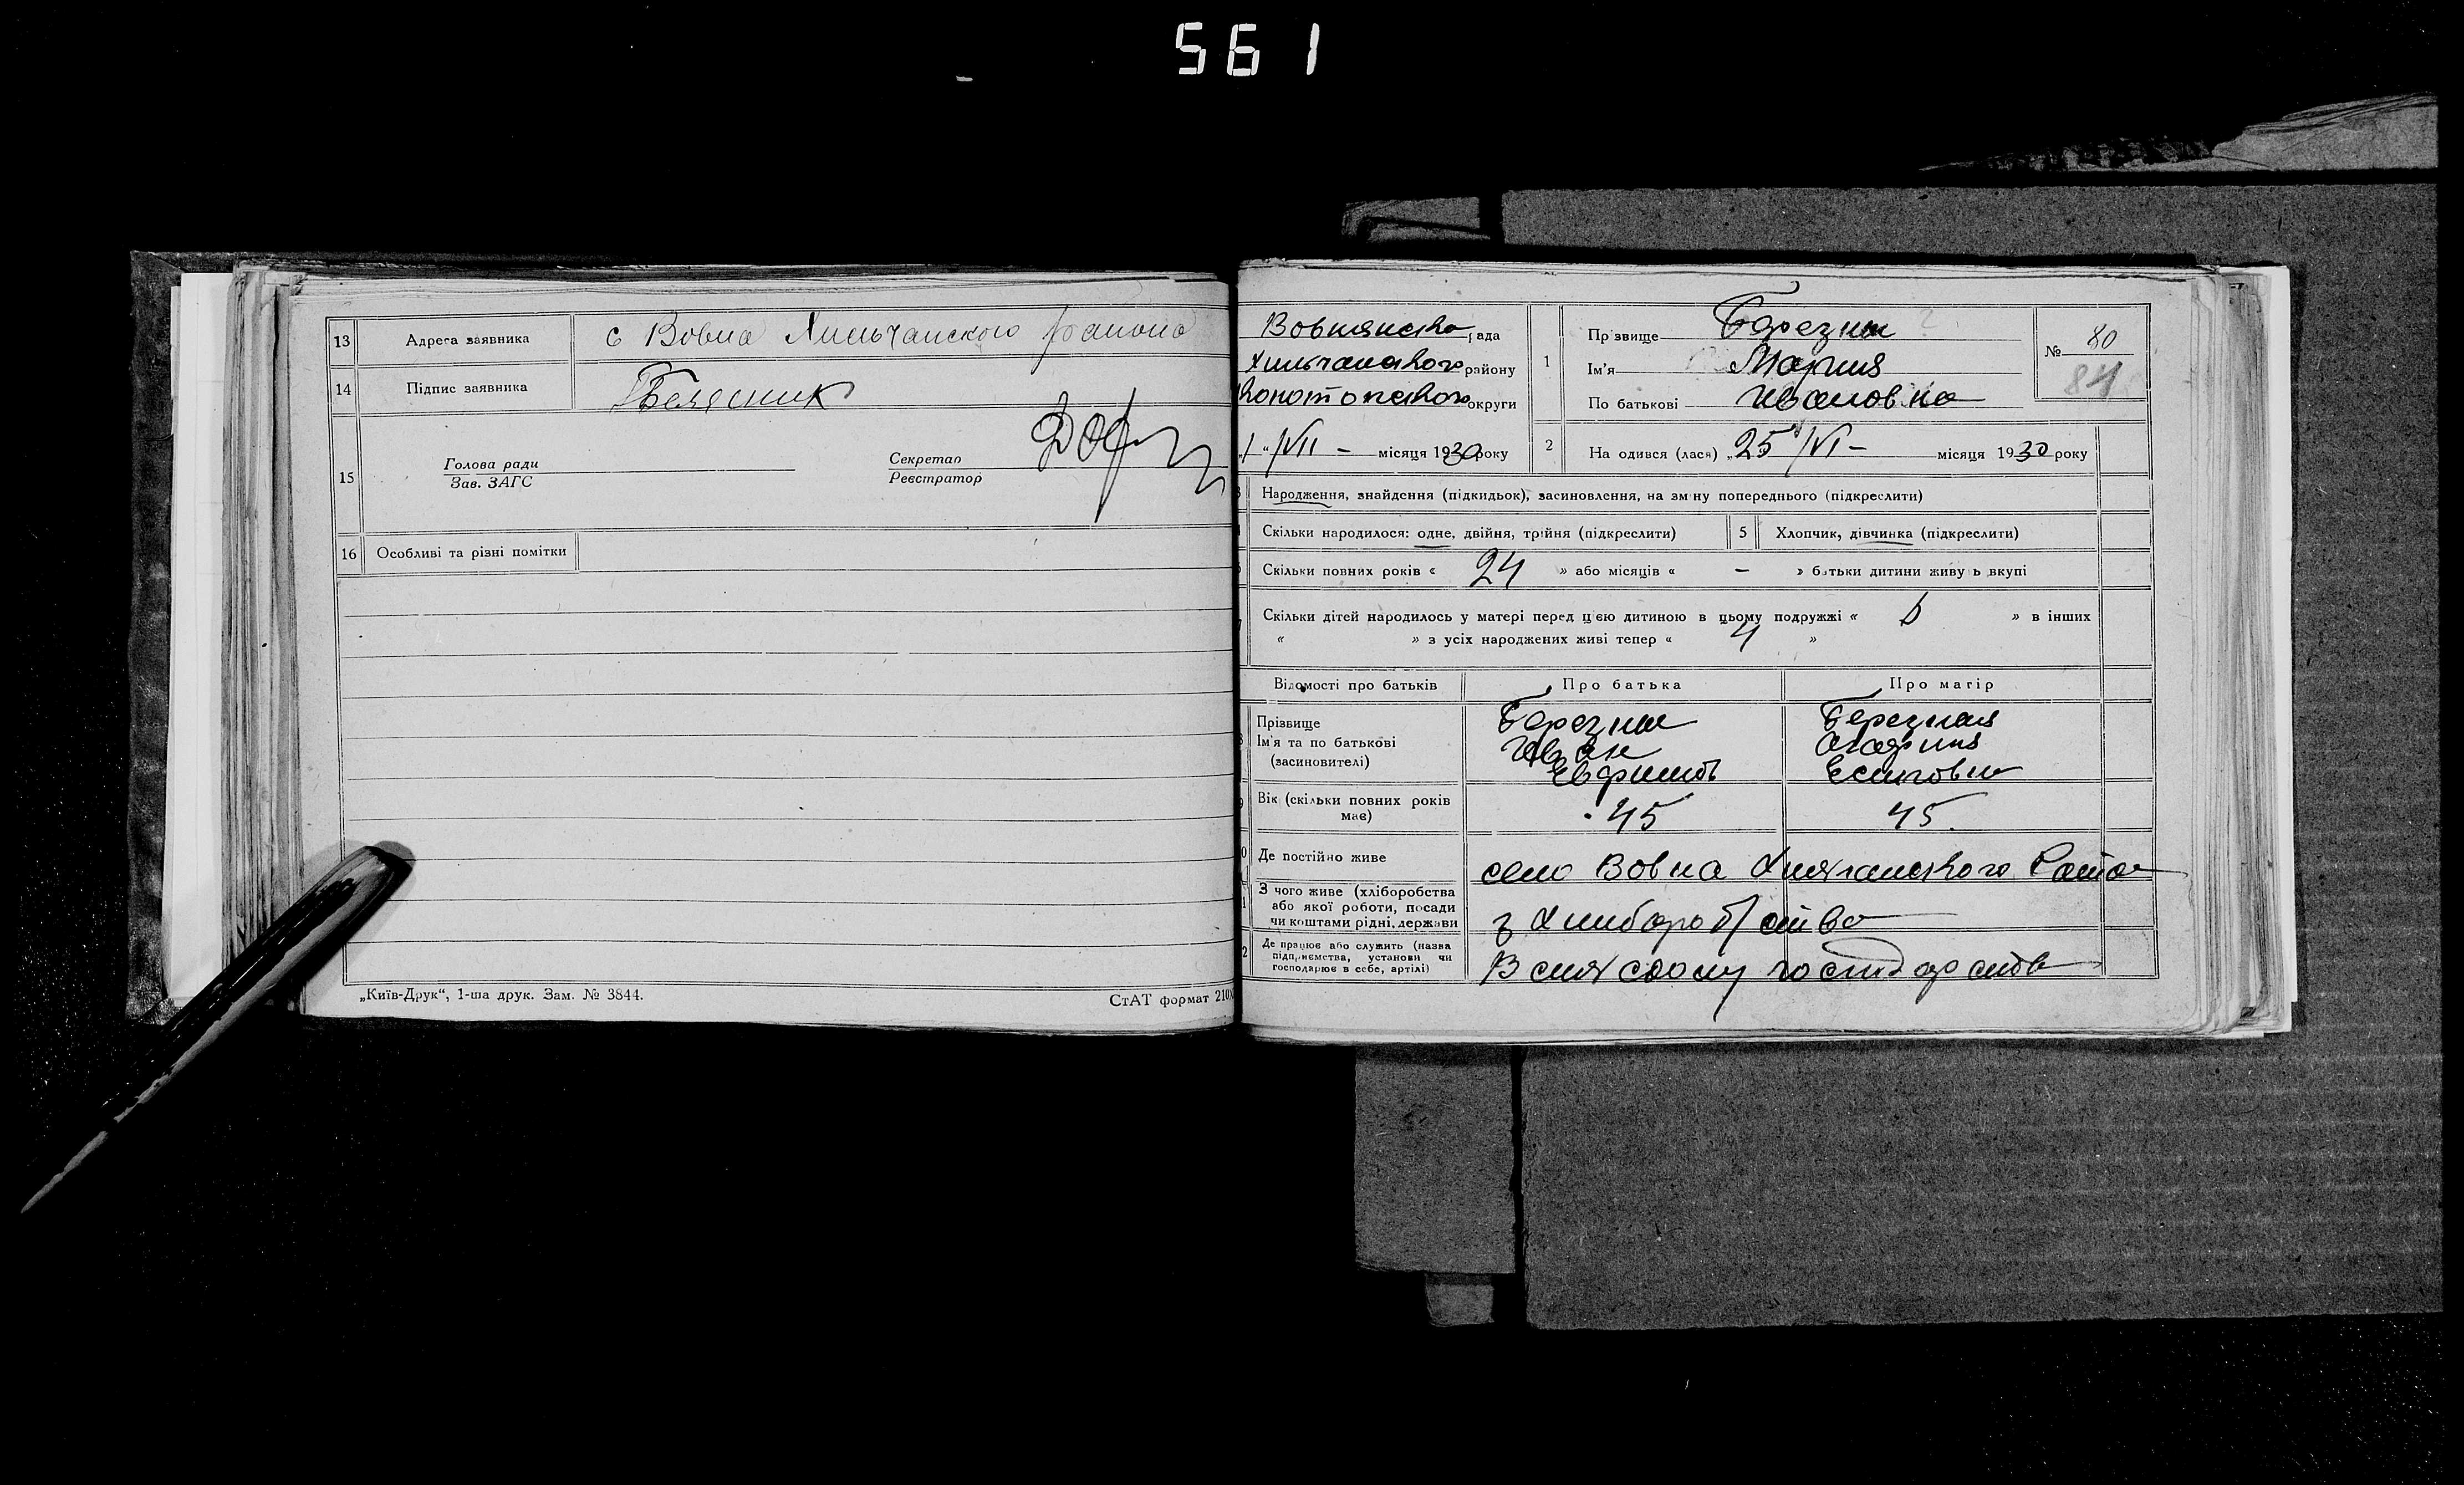 561
13 Адреса заявника с Вовна Хильчанского района
14 Підпис заявника
15 Голова ради
Зав. ЗАГС
Секретар
Реєстратор
16 Особливі та різні помітки
„Київ-Друк“, 1-ша друк. Зам. № 3844.
СтАТ формат 210
Вовнянська рада
Хильчанского району
Конотопского округи
1 Прізвище Березни
Ім'я Мария
По батькові Ивановна
№ 80
84
„1“ /VII – місяця 1930 року
2 На одився (лася) „25 /VI – місяця 1930 року
Народження, знайдення (підкидьок), засиновлення, на зміну попереднього (підкреслити)
Скільки народилося: одне, двійня, трійня (підкреслити)
5 Хлопчик, дівчинка (підкреслити)
Скільки повних років « 24 » або місяців « – » батьки дитини живуть вкупі
Скільки дітей народилось у матері перед цією дитиною в цьому подружжі « » в інших
« » з усіх народжених живі тепер « 4 »
Відомості про батьків Про батька Про матір
Прізвище
Ім'я та по батькові
(засиновителі)
Иван
Вік (скільки повних років має) 45 45
Де постійно живе село Вовна
З чого живе (хліборобства
або якої роботи, посади
чи коштами рідні, держави
Де працює або служить (назва
підприємства, установи чи
господарює в себе, артілі)